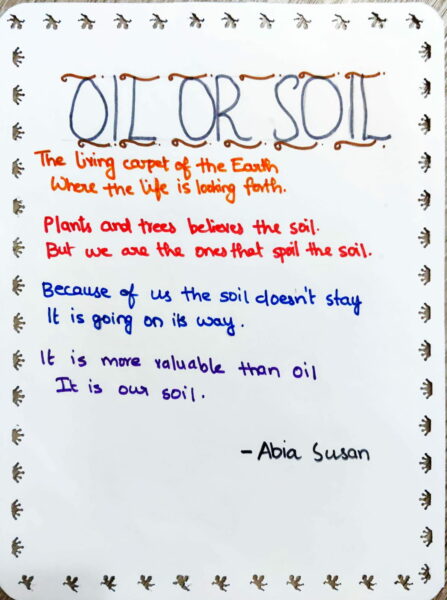 OIL OR SOIL
The living carpet of the Earth
Where the life is looking forth.
Plants and trees believes the soil.
But we are the ones that spoil the soil.
Because of us the soil doesn't stay
It is going on its way.
It is more valuable than oil
It is our soil.
- Abia Susan